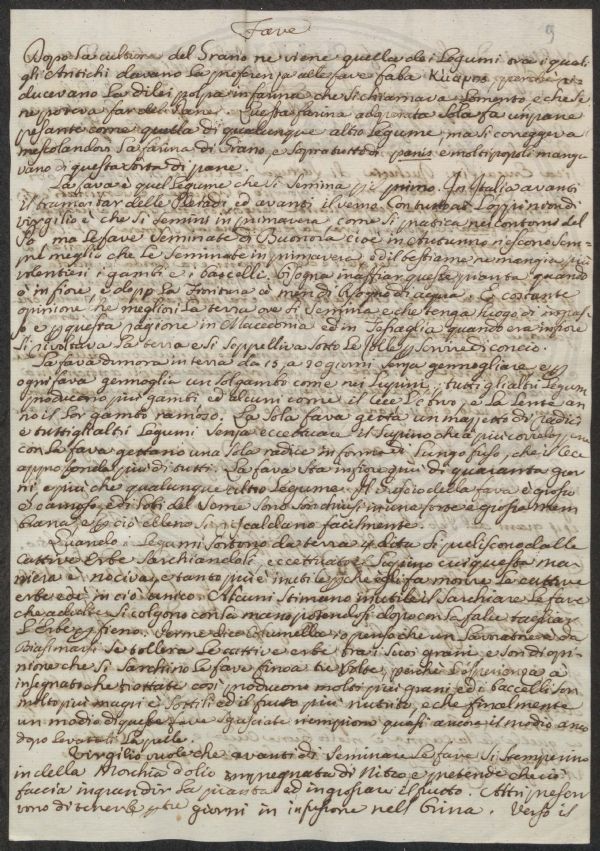 Fave
9
Dopo la cultura del Grano ne viene quella dei Legumi ora i quali
gli Antichi davano la preferenza alle fave faba Κυαμος perche ri-
ducevano la di lei polpa in farina che si chiamava Lomento e che se
ne poteva far del Pane. Questa farina adoprata sola fa un pane
pesante come quella di qualunque altro legume, ma si correggeva
mescolandovi la farina di Grano, e sopratutto di panis e molti popoli mangia-
vano di questa sorta di pane.
La fava è quel Legume che si semina pil primo. In Italia avanti
il tramontar delle Pleiadi ed avanti il verno. Con tutto ciò l'oppinione di
virgilio è che si semini in primavera come si pratica nei contorni del
Pò ma le fave seminate di Buonora cioè in Autunno riescono sem-
pre meglio che le seminate in primavera, ed il bestiame ne mangia più
volentieri i gambi e i baccelli. Bisogna inaffiar questa pianta quando
è in fiore, e dopo la fioritura à men di bisogno di acqua. È costante
opinione che megliori la terra ove si semina e che tenga luogo di ingras-
so e per questa ragione in Macedonia ed in Tessaglia quando era in fiore
si rivoltava la terra e si seppelliva sotto le Zolle per servire di concio.
La fava dimora in terra da 15 a 20 giorni senza germogliare e
ogni fava germoglia un sol gambo come nei Lupini, tutti gli altri Legumi
producono più gambi ed alcuni come il Cece l'Ervo, e la Lente an-
no il lor gambo ramoso. La sola fava getta un mazzetto di radici
e tutti gli altri Legumi senza eccettuare il Lupino che à più correlazione
con la fava gettano una sola radice in forma di lungo fuso, che il Cece
appro fonda più di tutti. La fava sta in fiore più di quaranta gior-
ni e più che qualunque altro Legume. Il guscio della fava è grosso
e carnoso, ed i lobi del seme sono racchiusi in una forte e grossa mem-
brana, e per ciò elleno si riscaldano facilmente.
Quando i Legumi sortono da terra 4 dita si puliscono dalle
cattive Erbe sarchiandoli, eccettuatone il Lupino cui questa ma-
niera è nociva, e tanto più è inutile perche egli fa morire le cattive
erbe ed è in ciò unico. Alcuni stimano inutile il sarchiare le fave
che adulte si colgono con la mano potendosi dopo con la falce tagliar
l'Erbe per fieno. Come dice Columella io penso che un Lavoratore è da
Biasimarsi se tollera le cattive erbe tra i suoi grani e son di opi-
nione che si sarchino le fave fino a tre volte, perchè l'esperienza à
insegnato che trattate così producono molti più grani ed i baccelli son
molto più magri e sottili ed il frutto più nutrito, e che finalmente
un modio di queste fave sgusciate riempiono quasi ancora il modio anco
dopo levatoli la pelle.
Virgilio vuole che avanti di seminare le fave si stemperino
in della Morchia d'olio impregnata di Nitro e pretende che ciò
faccia ingrandir la pianta ed ingrossare il frutto. Altri prescri-
vono di tenerle per tre giorni in infusione nell'Orina. Verso il